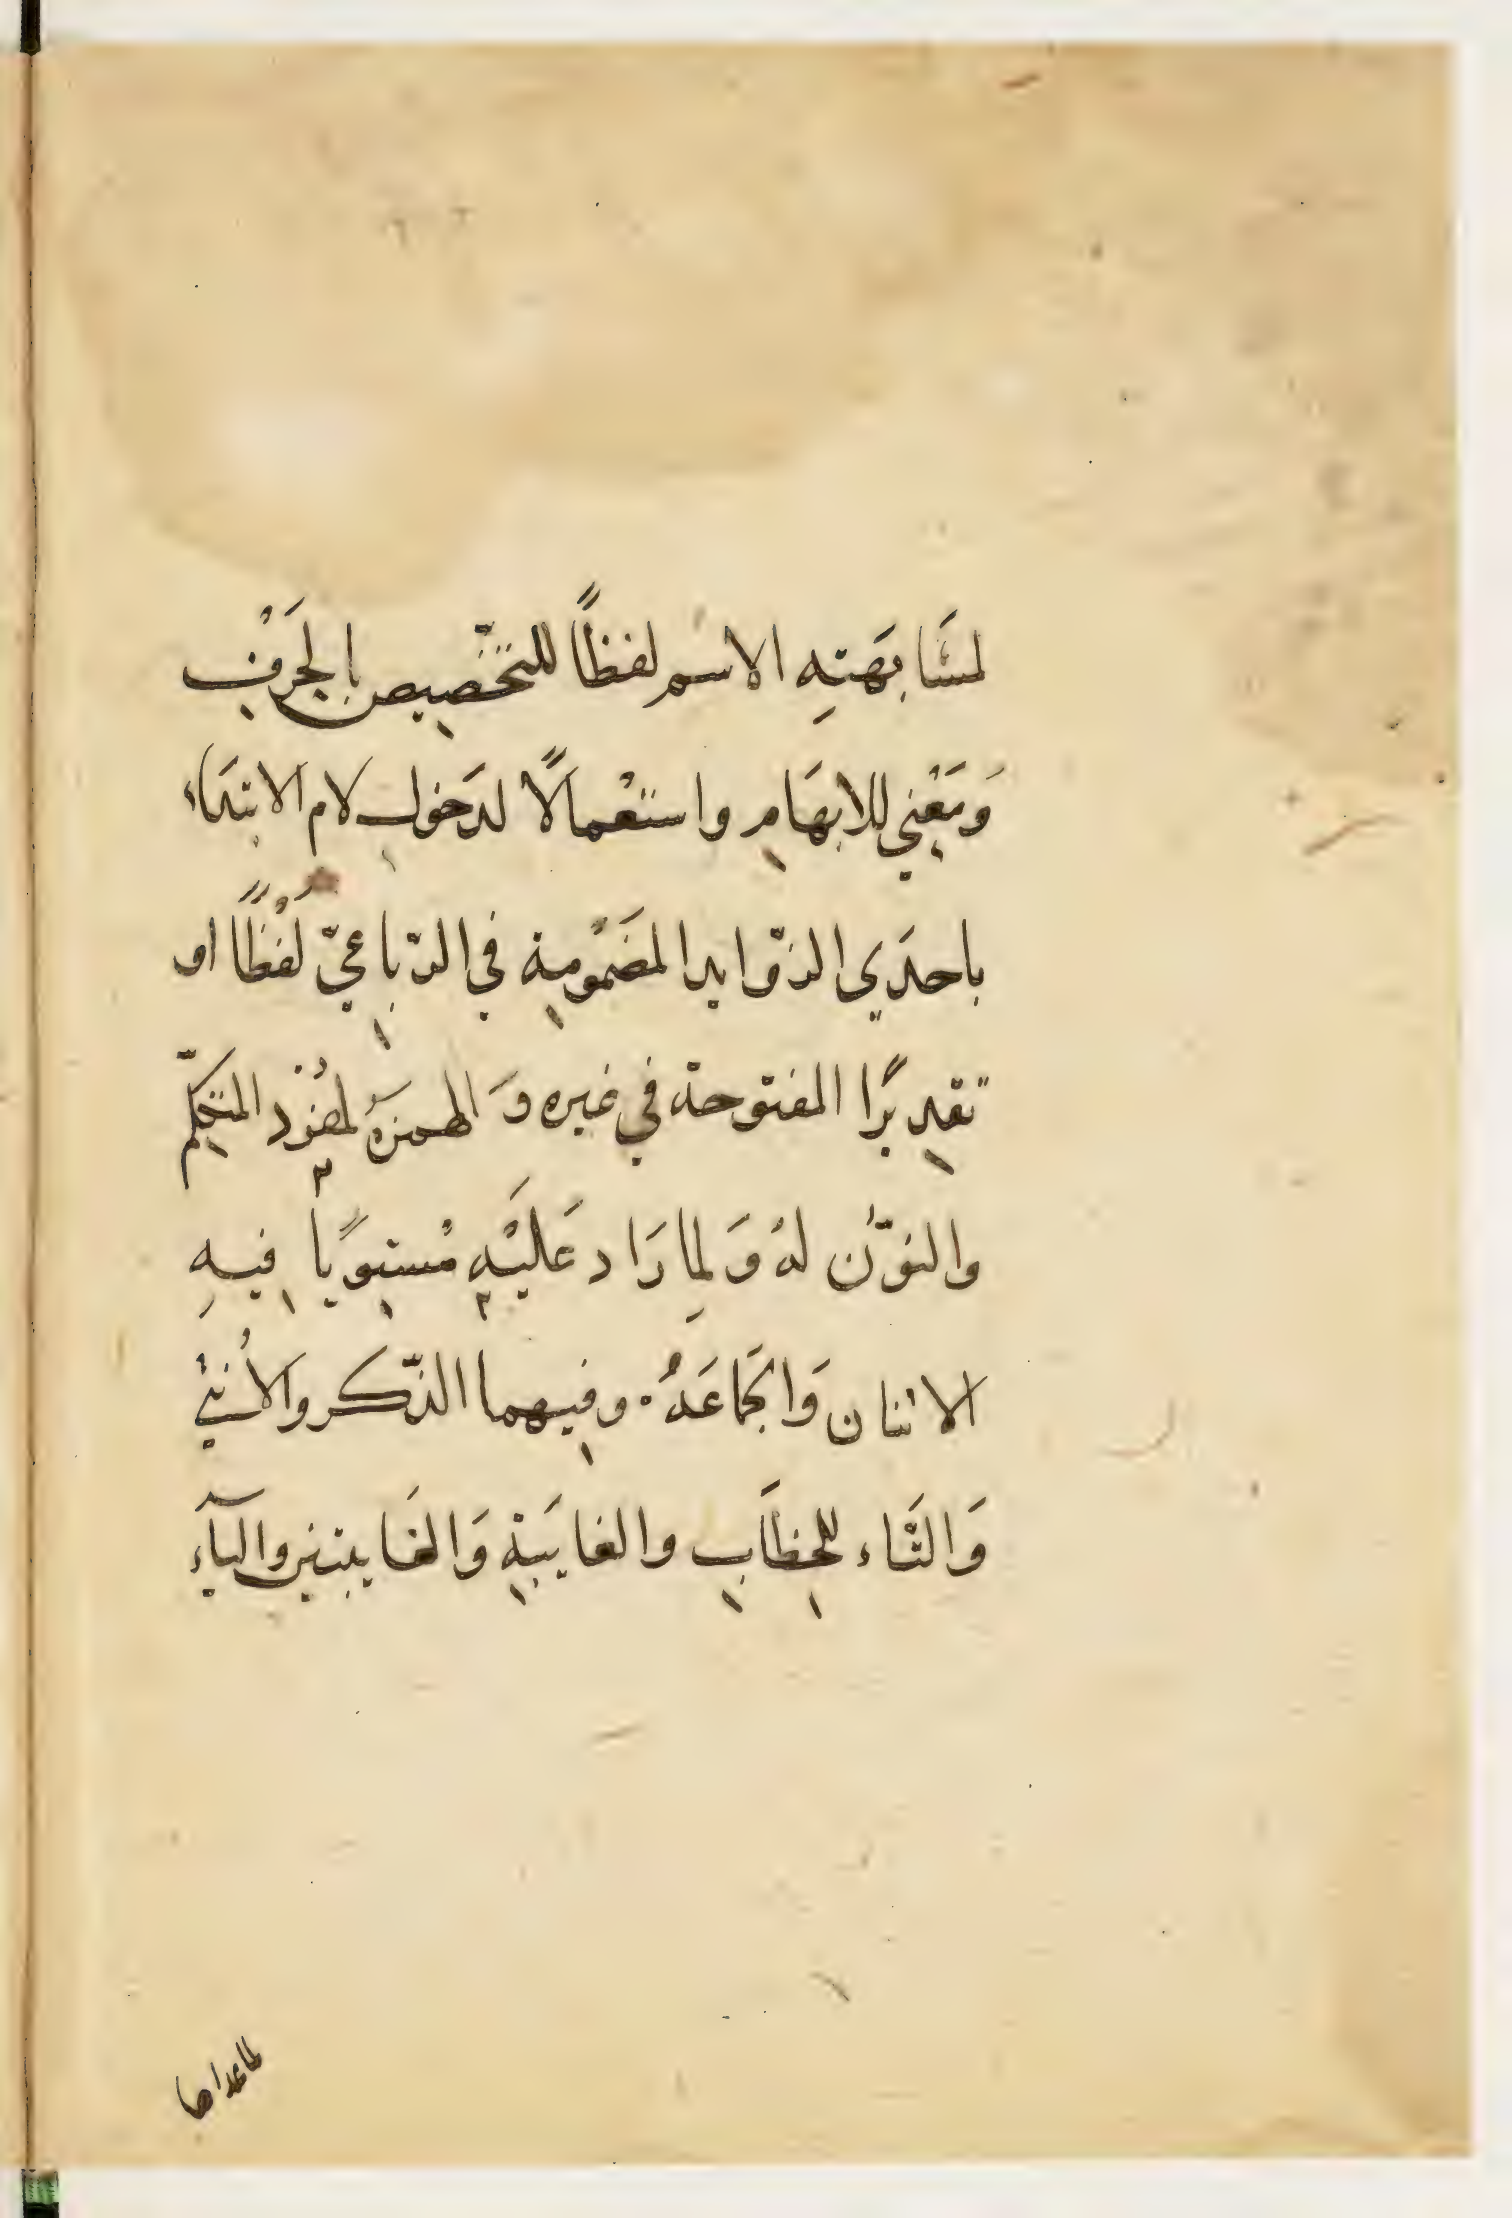 لمشَابهَتهِ الاسْم لفظًا للتّخصِيص بالحَرْف
وَمَعْني للابهَامِ واستعْمالًا لدخولِ لام الابتدَاء
باحدَي الزّوايد المضَمُومةِ في الرّباعيّ لَفْظًا او
تقدِيرًا المفتوحة في غيره وَالهمزةُ لمفْرد المتكلّم
والنوّن لهُ وَلِما زَاد عَليْهِ مُستوِيًا فيهِ
الاثنان وَالجَماعَةُ. وفيِهما الذّكر والأُنثي
وَالتَّاء للخِطَابِ والغايَبةِ وَالغَايبتين واليآء
لما عداها